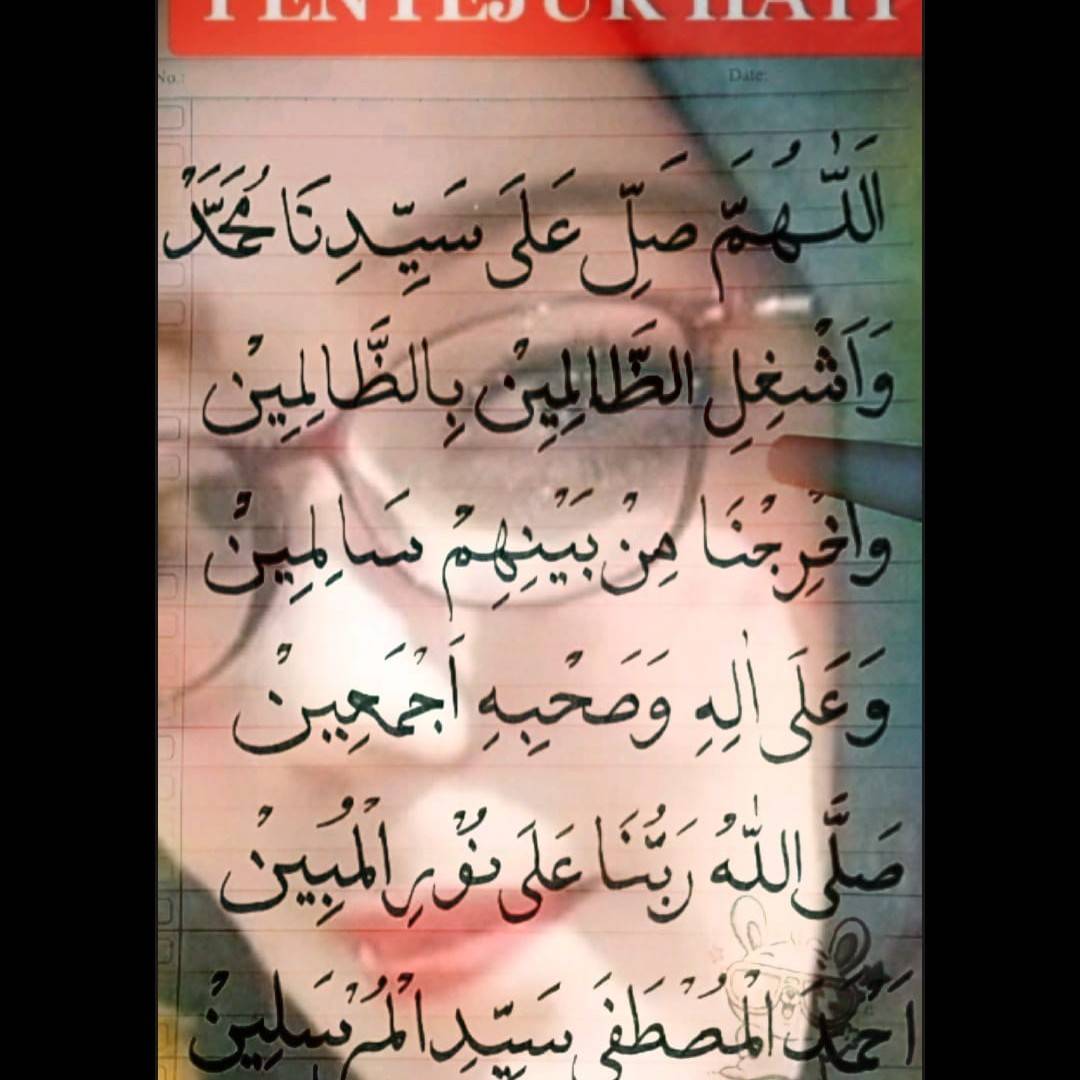 PENYEJUK HATI
No.: Date:
اَللّٰهُمَّ صَلِّ عَلَى سَيِّدِنَا مُحَمَّدْ
وَاَشْغِلِ الظَّالِمِيْنْ بِالظَّالِمِيْنْ
وَاَخْرِجْنَا مِنْ بَيْنِهِمْ سَالِمِيْنْ
وَعَلَى اٰلِهِ وَصَحْبِهِ اَجْمَعِيْنْ
صَلَّى اللّٰهُ رَبُّنَا عَلَى نُوْرِ الْمُبِيْنْ
اَحْمَدَ الْمُصْطَفَى سَيِّدِ الْمُرْسَلِيْنْ